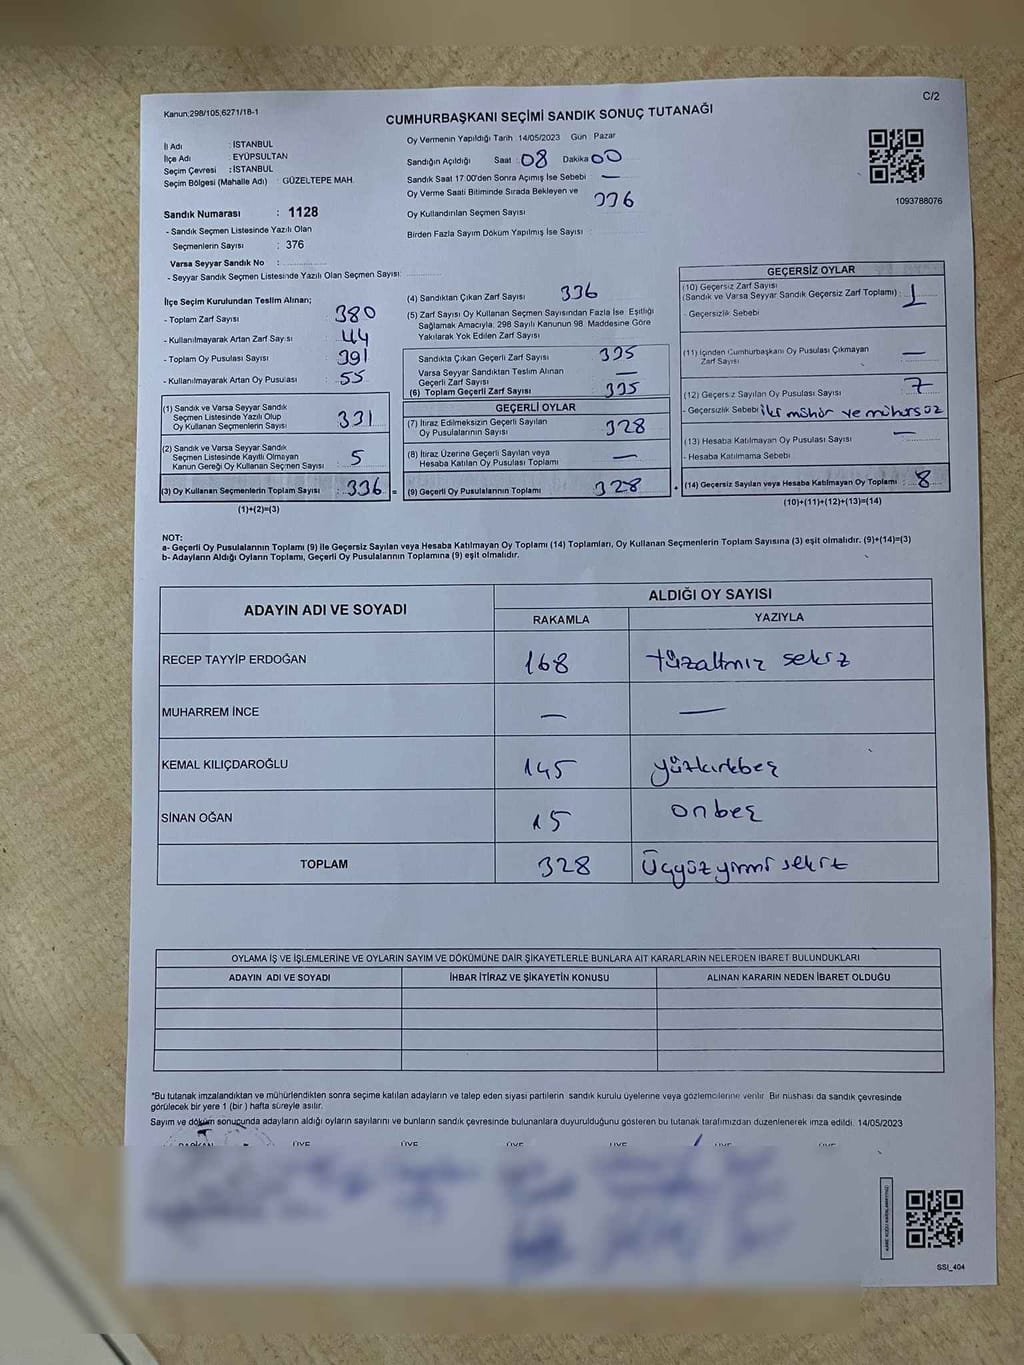 Kanun;298/105;6271/18-1
C/2
CUMHURBAŞKANI SEÇİMİ SANDIK SONUÇ TUTANAĞI
İl Adı : İSTANBUL
İlçe Adı : EYÜPSULTAN
Seçim Çevresi : İSTANBUL
Seçim Bölgesi (Mahalle Adı) : GÜZELTEPE MAH.
Sandık Numarası : 1128
- Sandık Seçmen Listesinde Yazılı Olan
Seçmenlerin Sayısı : 376
Varsa Seyyar Sandık No :
- Seyyar Sandık Seçmen Listesinde Yazılı Olan Seçmen Sayısı:
Oy Vermenin Yapıldığı Tarih 14/05/2023 Gün Pazar
Sandığın Açıldığı Saat : 08 Dakika 00
Sandık Saat 17:00'den Sonra Açımış İse Sebebi —
Oy Verme Saati Bitiminde Sırada Bekleyen ve
Oy Kullandırılan Seçmen Sayısı
Birden Fazla Sayım Döküm Yapılmış İse Sayısı :
1093788076
İlçe Seçim Kurulundan Teslim Alınan;
- Toplam Zarf Sayısı : 380
- Kullanılmayarak Artan Zarf Sayısı : 44
- Toplam Oy Pusulası Sayısı : 391
- Kullanılmayarak Artan Oy Pusulası : 55
(1) Sandık ve Varsa Seyyar Sandık
Seçmen Listesinde Yazılı Olup
Oy Kullanan Seçmenlerin Sayısı : 331
(2) Sandık ve Varsa Seyyar Sandık
Seçmen Listesinde Kayıtlı Olmayan
Kanun Gereği Oy Kullanan Seçmen Sayısı : 5
(3) Oy Kullanan Seçmenlerin Toplam Sayısı : 336 =
(1)+(2)=(3)
(4) Sandıktan Çıkan Zarf Sayısı 336
(5) Zarf Sayısı Oy Kullanan Seçmen Sayısından Fazla İse, Eşitliği
Sağlamak Amacıyla, 298 Sayılı Kanunun 98. Maddesine Göre
Yakılarak Yok Edilen Zarf Sayısı
Sandıkta Çıkan Geçerli Zarf Sayısı 335
Varsa Seyyar Sandıktan Teslim Alınan
Geçerli Zarf Sayısı : —
(6) Toplam Geçerli Zarf Sayısı : 335
GEÇERLİ OYLAR
(7) İtiraz Edilmeksizin Geçerli Sayılan
Oy Pusulalarının Sayısı : 328
(8) İtiraz Üzerine Geçerli Sayılan veya
Hesaba Katılan Oy Pusulası Toplamı —
(9) Geçerli Oy Pusulalarının Toplamı : 328 +
GEÇERSİZ OYLAR
(10) Geçersiz Zarf Sayısı
(Sandık ve Varsa Seyyar Sandık Geçersiz Zarf Toplamı) : 1
- Geçersizlik Sebebi
(11) İçinden Cumhurbaşkanı Oy Pusulası Çıkmayan
Zarf Sayısı —
(12) Geçersiz Sayılan Oy Pusulası Sayısı : 7
- Geçersizlik Sebebi iki mühür ve mühürsüz
(13) Hesaba Katılmayan Oy Pusulası Sayısı —
- Hesaba Katılmama Sebebi
(14) Geçersiz Sayılan veya Hesaba Katılmayan Oy Toplamı : 8
(10)+(11)+(12)+(13)=(14)
NOT:
a- Geçerli Oy Pusulalarının Toplamı (9) ile Geçersiz Sayılan veya Hesaba Katılmayan Oy Toplamı (14) Toplamları, Oy Kullanan Seçmenlerin Toplam Sayısına (3) eşit olmalıdır. (9)+(14)=(3)
b- Adayların Aldığı Oyların Toplamı, Geçerli Oy Pusulalarının Toplamına (9) eşit olmalıdır.
ADAYIN ADI VE SOYADI ALDIĞI OY SAYISI
RAKAMLA YAZIYLA
RECEP TAYYİP ERDOĞAN 168 yüzaltmız sekiz
MUHARREM İNCE — —
KEMAL KILIÇDAROĞLU 145 yüzkırkbeş
SİNAN OĞAN 15 onbeş
TOPLAM 328 Üçyüzyirmi sekiz
OYLAMA İŞ VE İŞLEMLERİNE VE OYLARIN SAYIM VE DÖKÜMÜNE DAİR ŞİKAYETLERLE BUNLARA AİT KARARLARIN NELERDEN İBARET BULUNDUKLARI
ADAYIN ADI VE SOYADI İHBAR İTİRAZ VE ŞİKAYETİN KONUSU ALINAN KARARIN NEDEN İBARET OLDUĞU
*Bu tutanak imzalandıktan ve mühürlendikten sonra seçime katılan adayların ve talep eden siyasi partilerin sandık kurulu üyelerine veya gözlemcilerine verilir. Bir nüshası da sandık çevresinde
görülecek bir yere 1 (bir ) hafta süreyle asılır.
Sayım ve döküm sonucunda adayların aldığı oyların sayılarını ve bunların sandık çevresinde bulunanlara duyurulduğunu gösteren bu tutanak tarafımızdan düzenlenerek imza edildi. 14/05/2023
BAŞKAN ÜYE ÜYE ÜYE ÜYE ÜYE ÜYE
SSI_404